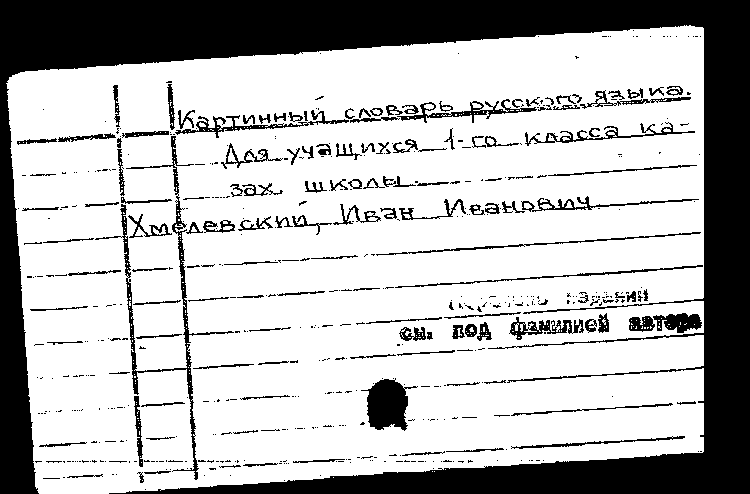 Картинный словарь русского языка.
Для учащихся 1-го класса ка-
зах. школы.
Хмелевский, Иван Иванович
Перечень изданий
см. под фамилией автора